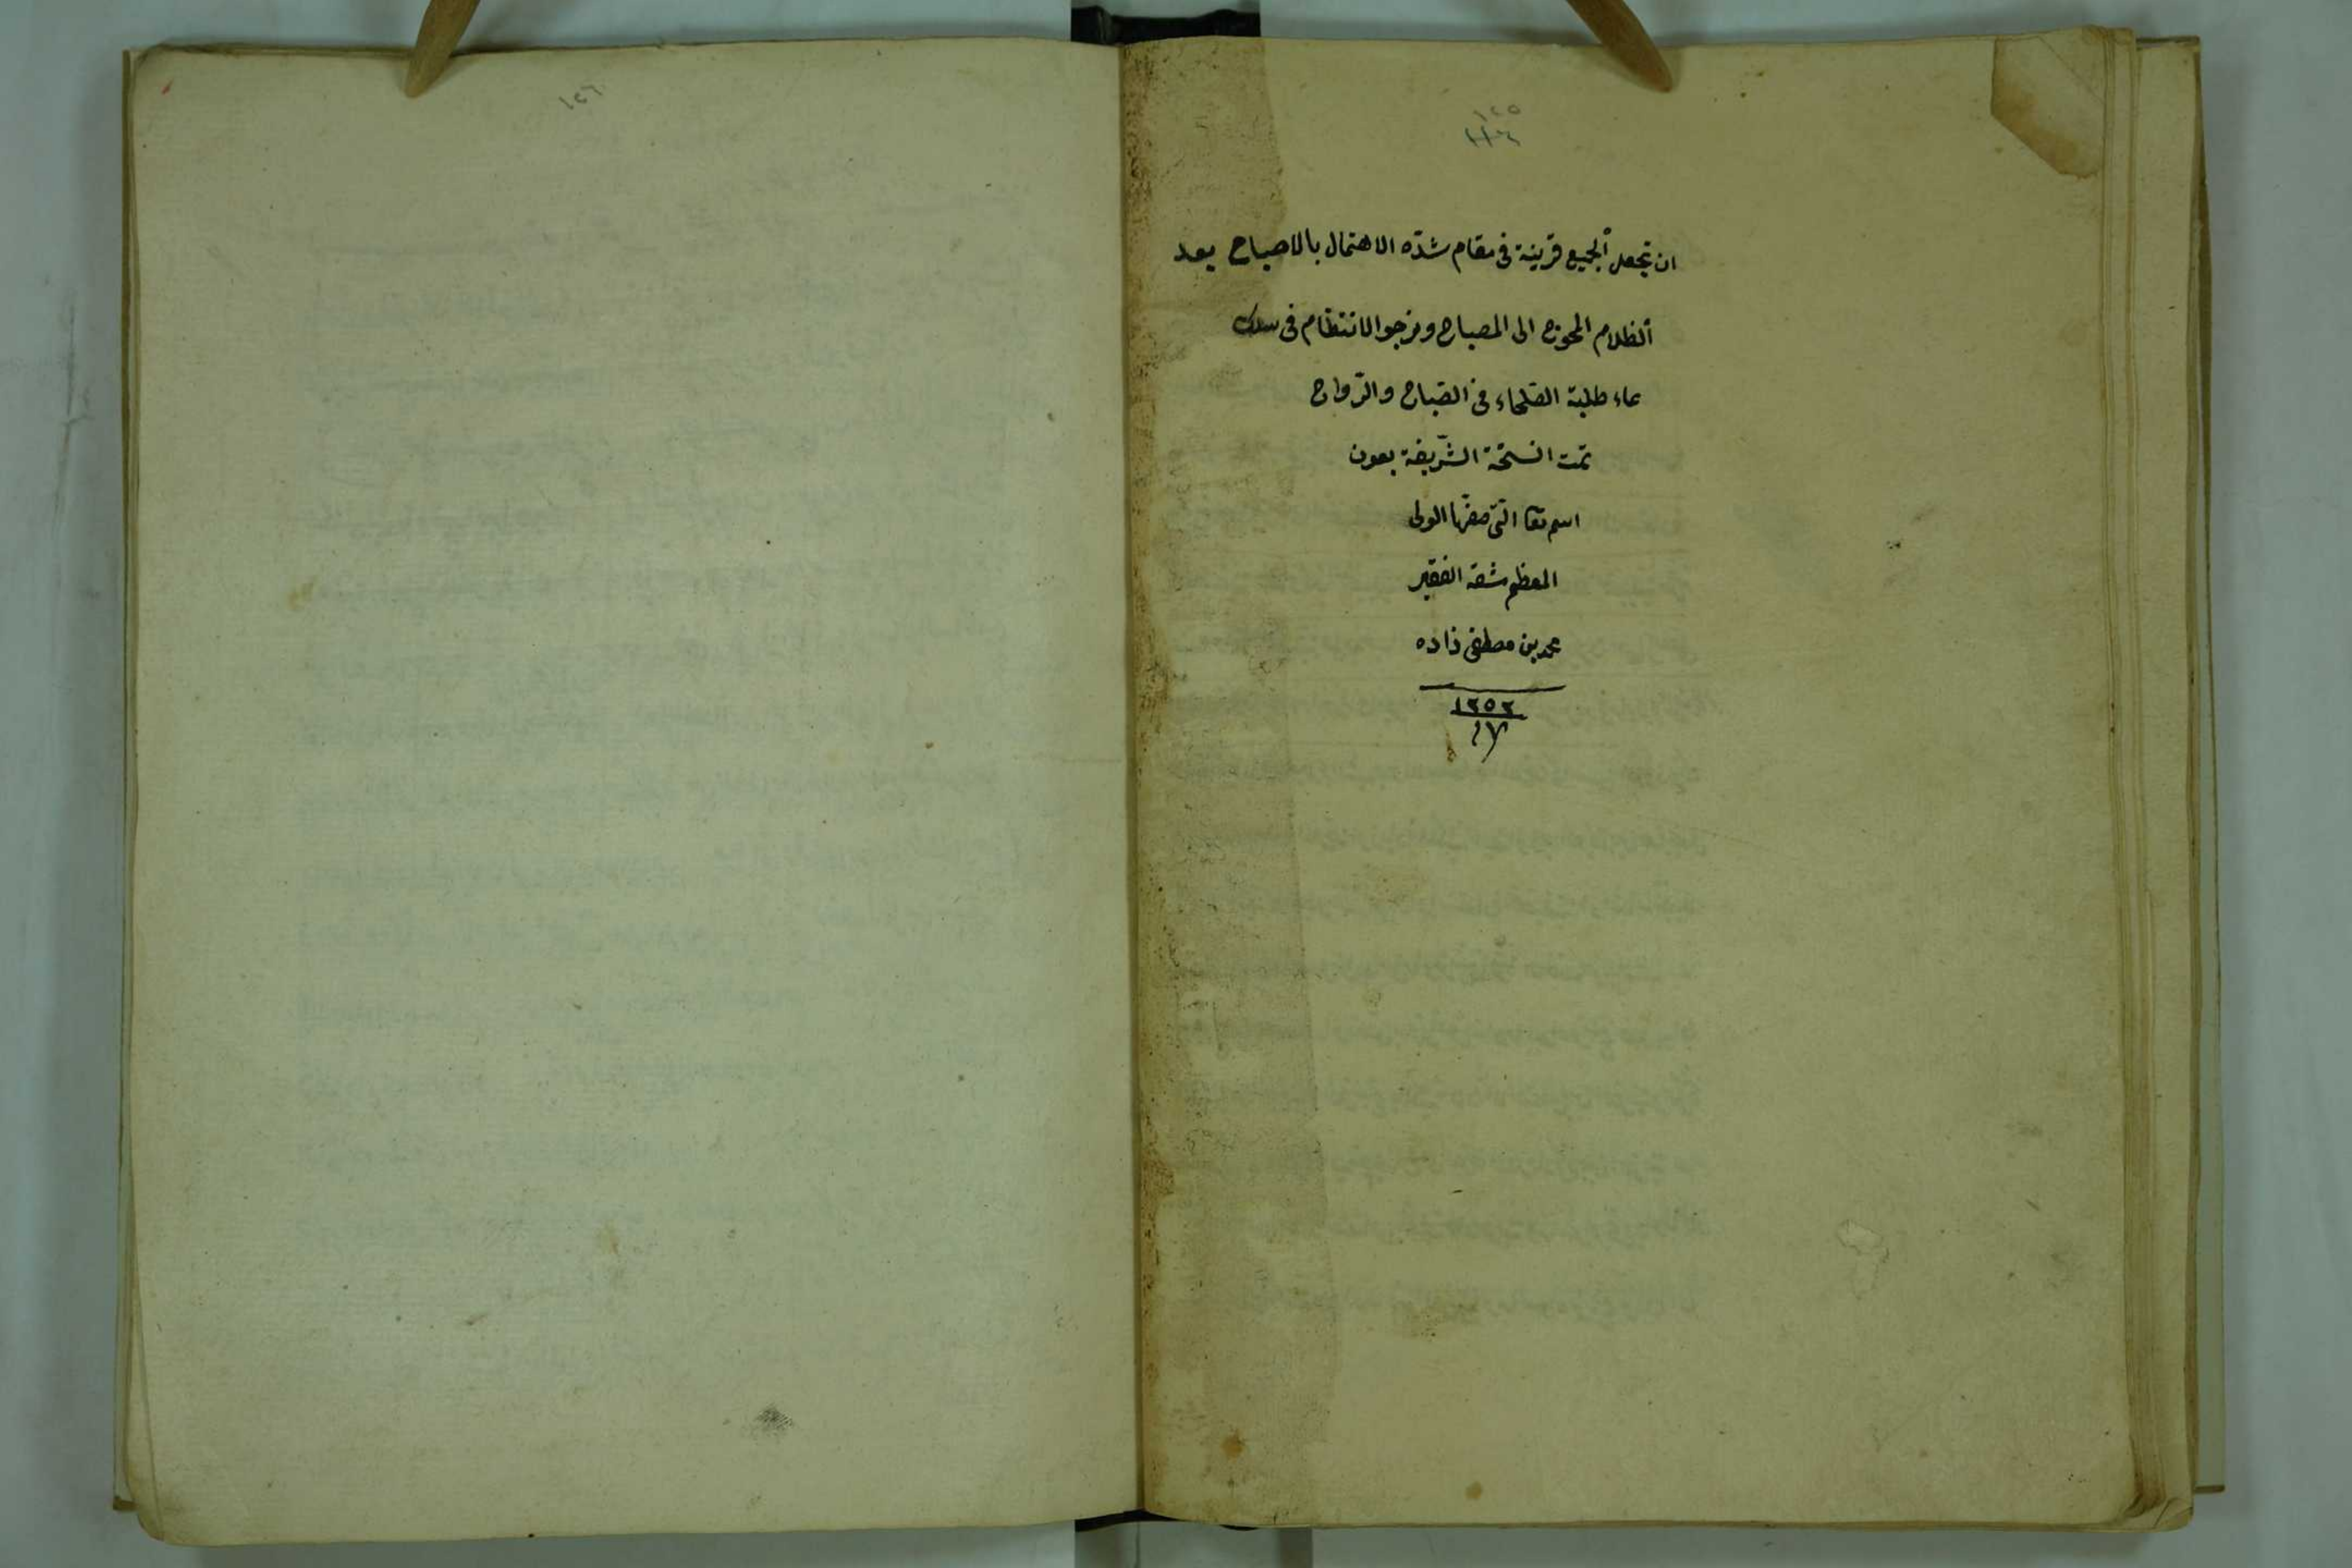 ١٢٥
ان تجعل الجميع قرينة فى مقام شدّة الاهتمال بالاصباح بعد
الظلام المحوج الى المصباح ونرجوا الانتظام فى سلك
دعاء طلبة الصّلحاء فى الصّباح والرّواح
تمت النسخة الشّريفة بعون
اسم تعا التى صنّفها المولى
المعظم الفقير
محمد بن مصطفى زاده
١٢٥٢
١٧
١٢٦